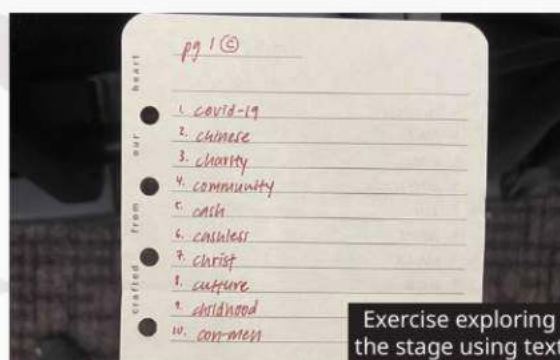 pg 1 ©
1. covid-19
2. chinese
3. charity
4. community
5. cash
6. cashless
7. christ
8. culture
9. childhood
10. con-men
crafted from our heart
Exercise exploring
the stage using text